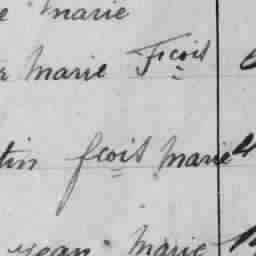 marie
marie Fcois
tin fcois marie
yean marie